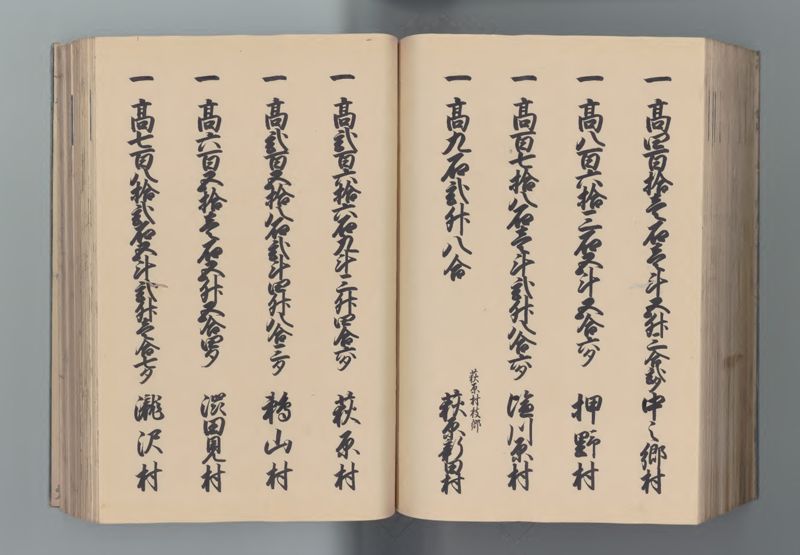 一 高四百拾壱石壱斗五升二合弐夕 中之郷村
一 高八百六拾二石五斗五合六夕 押野村
一 高百七拾八石壱斗弐升八合六夕 塩川原村
一 高九石弐升八合
萩原村枝郷
萩原新田村
一 高弐百六拾六石九斗三升四合六夕 萩原村
一 高弐百五拾八石弐斗四升八合二夕 鵜山村
一 高六百五拾壱石五升五合四夕 田見村
一 高七百八拾弐石五斗弐升壱合七夕 瀧沢村